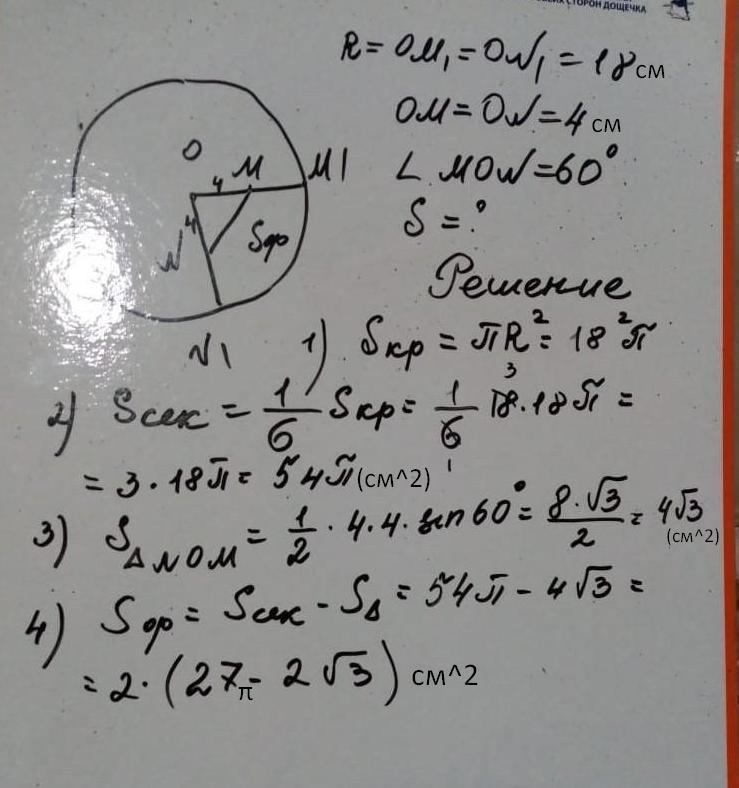 СТОРОН ДОЩЕЧКА
R = OM₁ = ON₁ = 18 см
OM = ON = 4 см
∠ MON = 60°
S = ?
O
4
M
M1
4
N
Sфр
N1
Решение
1) Sкр = πR² = 18²π
2) Sсек = 1/6 Sкр = 1/6 18·18π =
3
1
= 3·18π = 54π (см^2)
3) S△NOM = 1/2 · 4·4· sin 60° = 8·√3/2 = 4√3
(см^2)
4) Sφр = Sсек - S△ = 54π - 4√3 =
= 2·(27π - 2√3) см^2